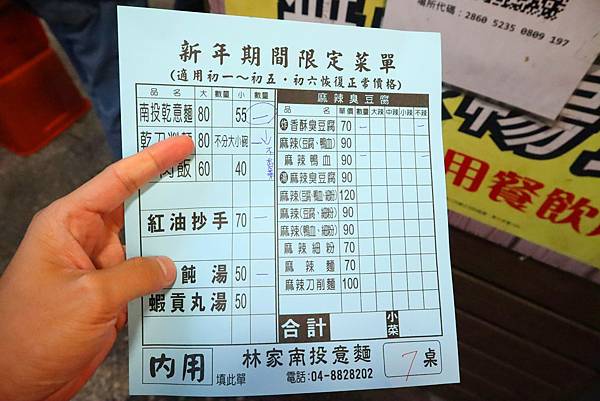 場所代碼：2860 5235 0809 197
用餐飲
新年期間限定菜單
(適用初一～初五．初六恢復正常價格)
品名 大 數量 小 數量
南投乾意麵 80 55 一
80 不分大小碗 一
肉飯 60 40
紅油抄手 70 一
飩湯 50 一
蝦貢丸湯 50
麻辣臭豆腐
品名 單價 數量 大辣 中辣 小辣 不辣
炸 香酥臭豆腐 70 一
麻辣(豆腐、鴨血) 90
麻辣鴨血 90 一
麻辣臭豆腐 90
麻辣(豆腐、鴨血、細粉) 120
麻辣(豆腐、細粉) 90
麻辣(鴨血、細粉) 90
麻辣細粉 70
麻辣麵 70
麻辣刀削麵 100
合計
小菜
內用 填此單
林家南投意麵
電話：04-8828202
7 桌